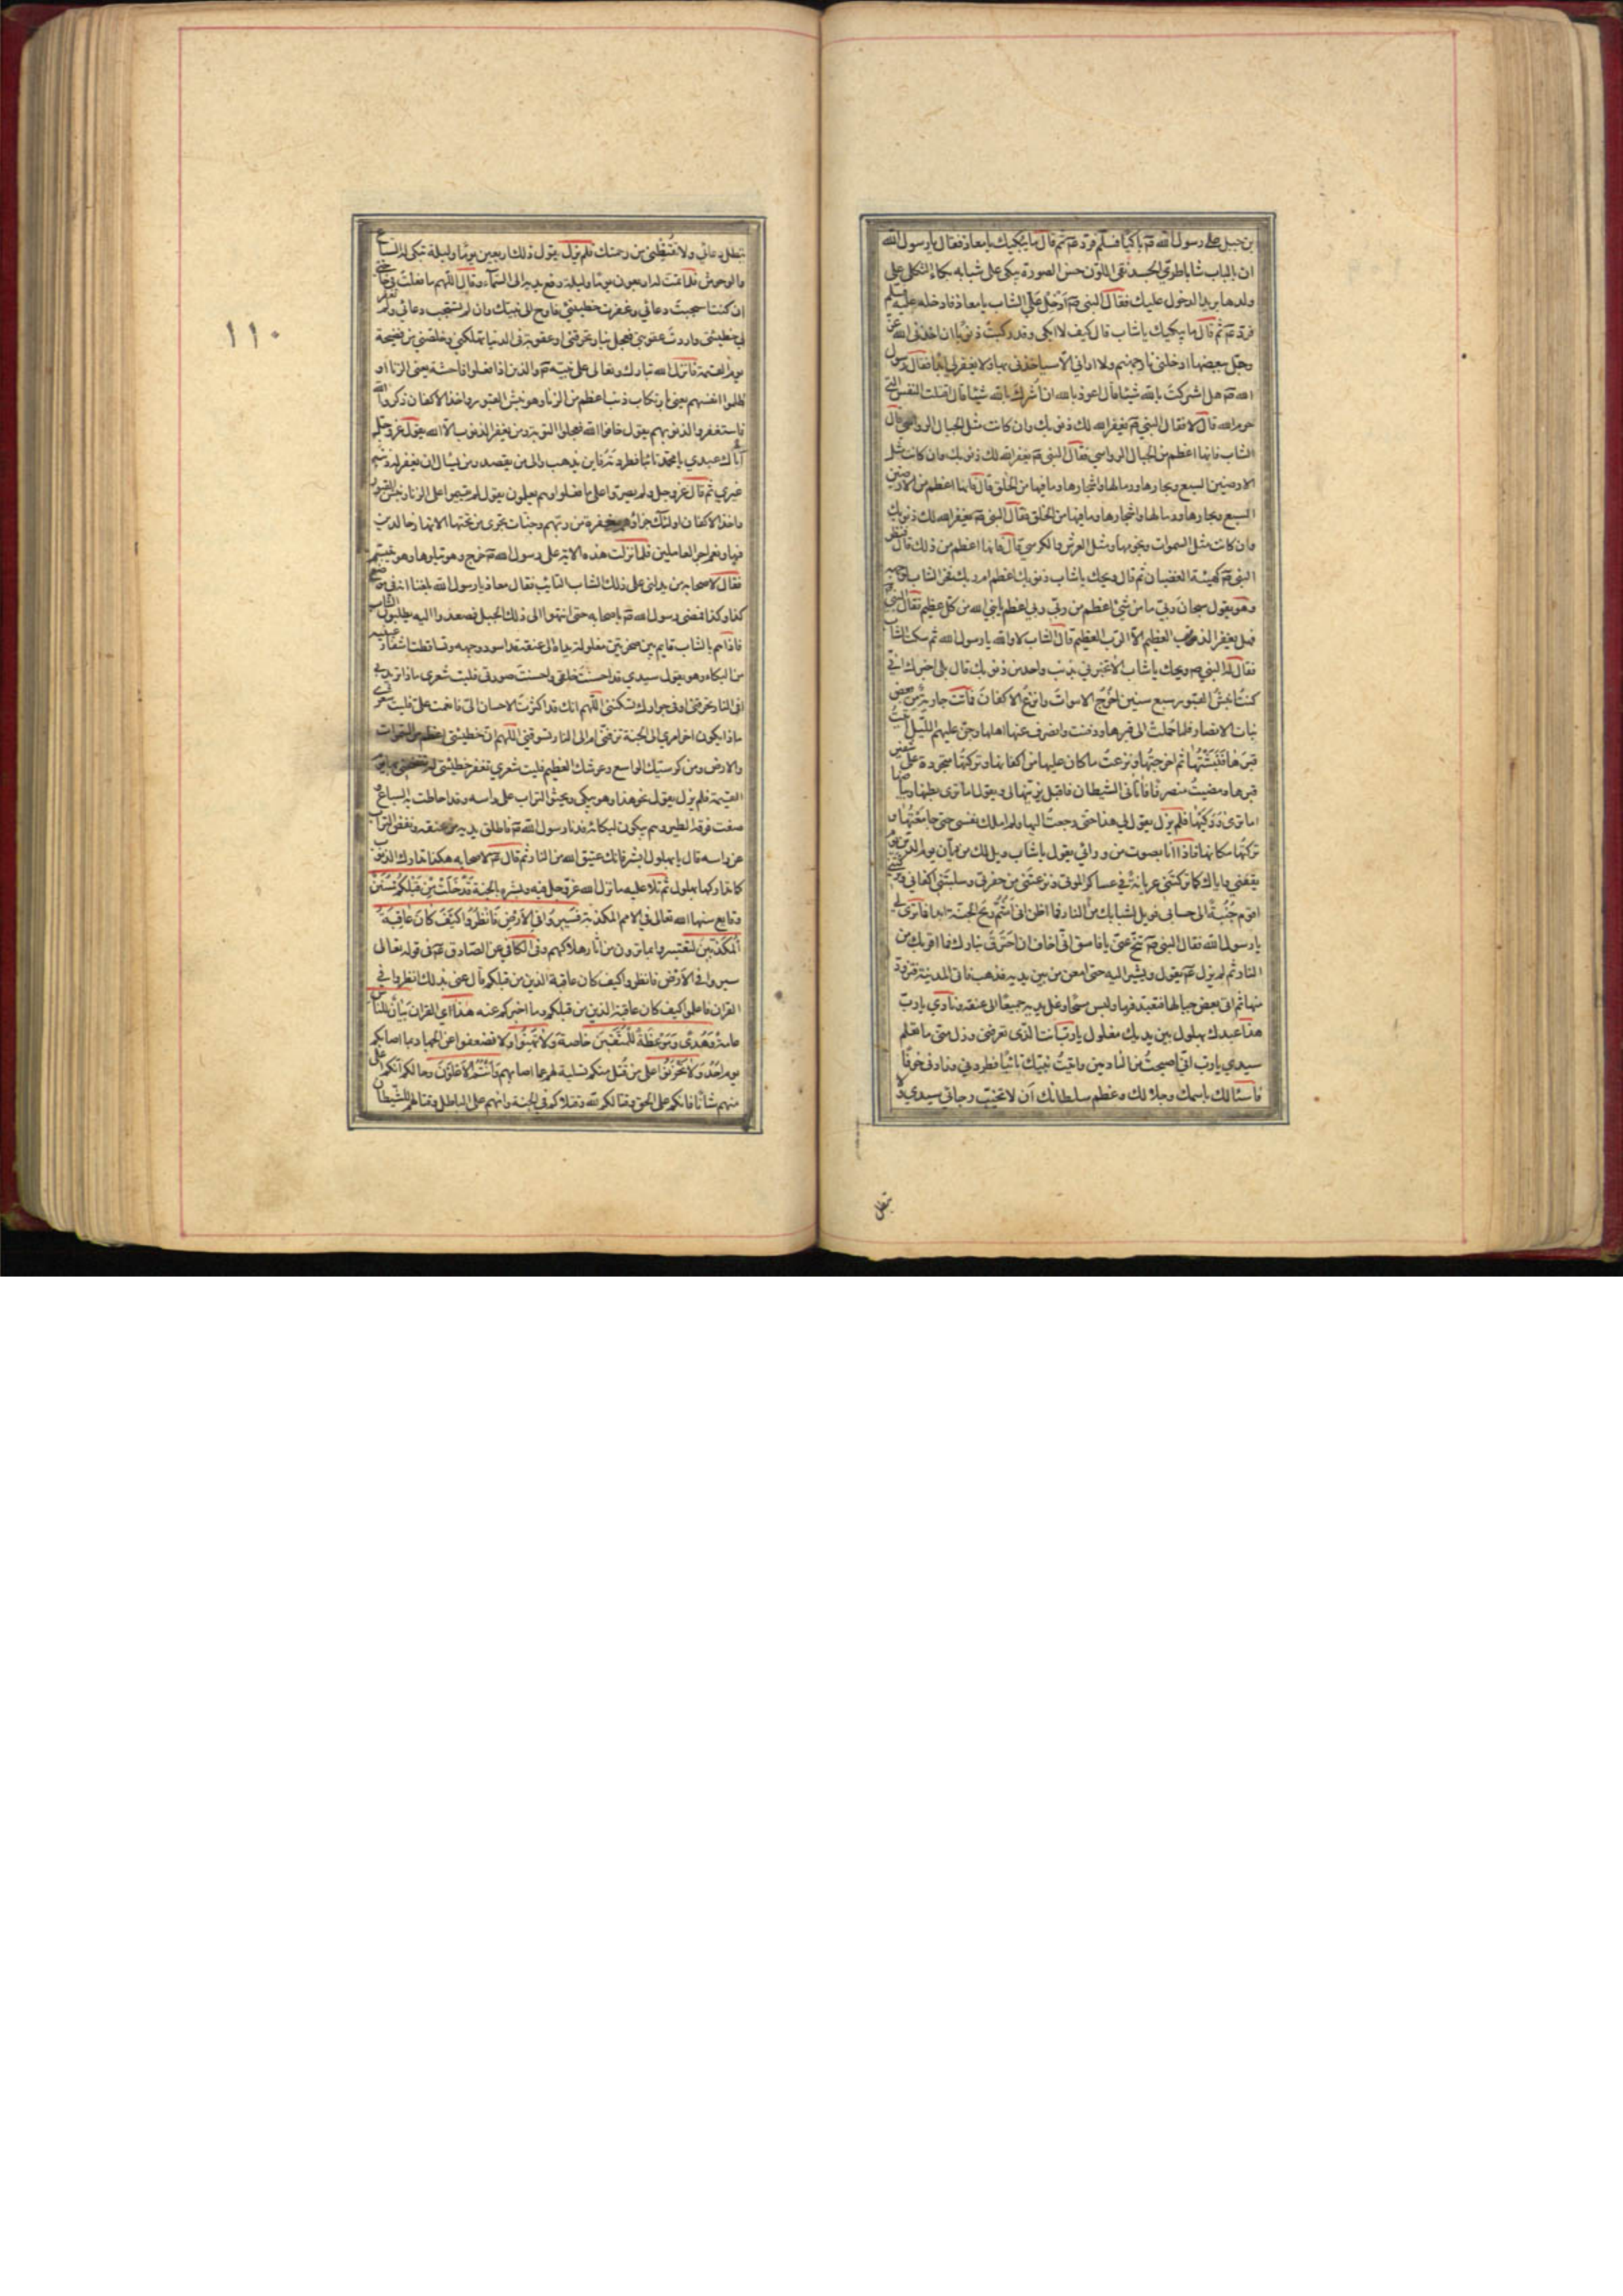 بن جبل على رسول الله صم باكيا فسلم فرد عم ثم قال ما يبكيك يا معاذ فقال يا رسول الله
ان بالباب شابا طري الجسد نقي اللون حسن الصورة يبكى على شبابه بكاء الثكلى على
ولدها يريد الدخول عليك فقال النبي صم أدخل علي الشاب يا معاذ فادخله عليه فسلم
فرد عم ثم قال ما يبكيك يا شاب قال كيف لا ابكى وقد ركبت ذنوبا ان اخذنى الله عز
وجل ببعضها ادخلنى نار جهنم ولا ارانى الا سياخذنى بها ولا يغفر لى ابدا فقال رسول
الله صم هل اشركت بالله شيئا قال اعوذ بالله ان أشرك بالله شيئا قال اقتلت النفس التى
حرم الله قال لا فقال النبي صم يغفر الله لك ذنوبك وان كانت مثل الجبال الرواسي قال
الشاب فانها اعظم من الجبال الرواسي فقال النبى صم يغفر الله لك ذنوبك وان كانت مثل
الارضين السبع وبحارها ورمالها واشجارها وما فيها من الخلق قال فانها اعظم من الارضين
السبع وبحارها ورمالها واشجارها وما فيها من الخلق فقال النبى صم يغفر الله لك ذنوبك
وان كانت مثل السموات ونجومها ومثل العرش والكرسي قال فانها اعظم من ذلك قال فنظر
النبى صم كهيئة الغضبان ثم قال ويحك يا شاب ذنوبك اعظم ام ربك فخر الشاب لوجهه
وهو يقول سبحان ربي ما من شئ اعظم من ربي ربي اعظم يا نبي الله من كل عظيم فقال النبي
فهل يغفر الذنب العظيم الا الرب العظيم قال الشاب لا والله يا رسول الله ثم سكت الشاب
فقال له النبي صم ويحك يا شاب الا تخبرني بذنب واحد من ذنوبك قال بلى اخبرك اني
كنت انبش القبور سبع سنين اخرج الاموات وانزع الاكفان فماتت جارية من بعض
بنات الانصار فلما حملت الى قبرها ودفنت وانصرف عنها اهلها وجن عليهم الليل اتيت
قبرها فنبشتها ثم اخرجتها ونزعت ما كان عليها من اكفانها وتركتها متجردة على شفير
قبرها ومضيت منصرفا فأتانى الشيطان فاقبل يزينها لى ويقول اما ترى بطنها وبياضها
اما ترى وركيها فلم يزل يقول لي هذا حتى رجعت اليها ولم املك نفسى حتى جامعتها و
تركتها مكانها فاذا أنا بصوت من ورائي يقول يا شاب ويل لك من ديان يوم الدين يوم
يقفنى واياك كما تركتنى عريانة في عساكر الموتى ونزعتنى من حفرتى وسلبتنى اكفاني وتركتنى
اقوم جنبة الى حسابى فويل لشبابك من النار فما اظن انى أشم ريح الجنة ابدا فما ترى لى
يا رسول الله فقال النبى صم تنح عني يا فاسق اني اخاف ان احترق بنارك فما اقربك من
النار ثم لم يزل عم يقول ويشير اليه حتى امعن من بين يديه فذهب فاتى المدينة فتزود
منها ثم اتى بعض جبالها فتعبد فيها ولبس مسحا وغل يديه جميعا الى عنقه ونادى يا رب
هذا عبدك بهلول بين يديك مغلول يا رب أنت الذى تعرفنى وزل منى ما تعلم
سيدي يا رب انى اصبحت من النادمين واتيت نبيك تائبا فطردنى وزادنى خوفا
فأسئالك باسمك وجلالك وعظم سلطانك أن لا تخيب رجائي سيدي ولا
تبطل
١١٠
تبطل دعائي ولا تقنطني من رحمتك فلم يزل يقول ذلك اربعين يوما وليلة تبكى له السباع
والوحوش فلما تمت له اربعون يوما وليلة رفع يديه الى السماء وقال اللهم ما فعلت في حاجتي
ان كنت استجبت دعائي وغفرت خطيئتي فاوح الى نبيك وان لم تستجب دعائي ولم تغفر
لي خطيئتى واردت عقوبتي فعجل بنار تحرقنى او عقوبة فى الدنيا تهلكني وخلصني من فضيحة
يوم القيمة فانزل الله تبارك وتعالى على نبيه صم والذين اذا فعلوا فاحشة يعنى الزنا او
ظلموا انفسهم يعنى بارتكاب ذنب اعظم من الزنا وهو نبش القبور واخذ الاكفان ذكروا الله
فاستغفروا لذنوبهم يقول خافوا الله فعجلوا التوبة ومن يغفر الذنوب الا الله يقول عز وجل
أتاك عبدي يا محمد تائبا فطردته فاين يذهب والى من يقصد ومن يسال ان يغفر له ذنبه
غيرى ثم قال عز وجل ولم يصروا على ما فعلوا وهم يعلمون يقول لم يقيموا على الزنا ونبش القبور
واخذ الاكفان اولئك جزاؤهم مغفرة من ربهم وجنات تجرى من تحتها الانهار خالدين
فيها ونعم اجر العاملين فلما نزلت هذه الاية على رسول الله صم خرج وهو يتلوها وهو يتبسم
فقال لاصحابه من يدلنى على ذلك الشاب التائب فقال معاذ يا رسول الله بلغنا انه فى موضع
كذا وكذا فمضى رسول الله صم باصحابه حتى انتهوا الى ذلك الجبل فصعدوا اليه يطلبون الشاب
فاذا هم بالشاب قايم بين صخرتين مغلولة يداه الى عنقه قد اسود وجهه وتساقطت اشفار عينيه
من البكاء وهو يقول سيدي قد احسنت خلقى واحسنت صورتى فليت شعرى ماذا تريد بى
افى النار تحرقنى او فى جوارك تسكننى اللهم انك قد اكثرت الاحسان الى فانعمت على فليت شعرى
ماذا يكون اخر امرى الى الجنة تزفنى ام الى النار تسوقنى اللهم ان خطيئتى اعظم من السموات
والارض ومن كرسيك الواسع وعرشك العظيم فليت شعرى تغفر خطيئتى ام تفضحنى بها يوم
القيمة فلم يزل يقول نحو هذا وهو يبكى ويحثو التراب على راسه وقد احاطت به السباع و
صفت فوقه الطير وهم يبكون لبكائه فدنا رسول الله صم فاطلق يديه من عنقه ونفض التراب
عن راسه قال يا بهلول ابشر فانك عتيق الله من النار ثم قال عم لاصحابه هكذا تداركوا الذنوب
كما تداركها بهلول ثم تلا عليه ما نزل الله عز وجل فيه وبشره بالجنة قد خلت من قبلكم سنن
وقايع سنها الله تعالى في الامم المكذبة فسيروا فى الأرض فانظروا كيف كان عاقبة
المكذبين لتعتبروا بما ترون من آثار هلاكهم وفى الكافي عن الصادق عم فى قوله تعالى
سيروا فى الأرض فانظروا كيف كان عاقبة الذين من قبلكم قال عنى بذلك انظروا في
القران فاعلموا كيف كان عاقبة الذين من قبلكم وما اخبركم عنه هذا اى القران بيان للناس
عامة وهدى وموعظة للمتقين خاصة ولا تهنوا ولا تضعفوا عن الجهاد بما اصابكم
يوم احد ولا تحزنوا على من قتل منكم تسلية لهم عما اصابهم وأنتم الأعلون وحالكم انكم اعلى
منهم شأنا فانكم على الحق وقتالكم لله وقتلاكم فى الجنة وانهم على الباطل وقتالهم للشيطان